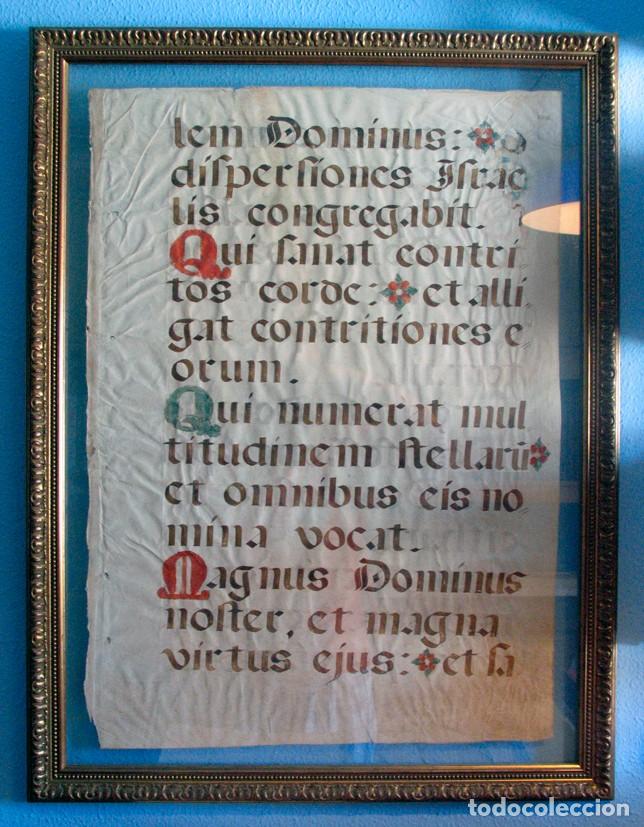 lem Dominus:
diſperſiones Iſrae
lis congregabit.
Qui ſanat contri
tos corde: et alli
gat contritiones e
orum.
Qui numerat mul
titudinem ſtellarū
et omnibus eis no
mina vocat.
Magnus Dominus
noſter, et magna
virtus ejus: et ſa
todocoleccion